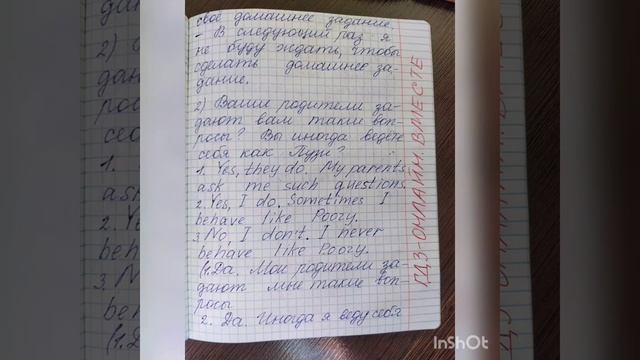 свое домашнее задание.
- В следующий раз я
не буду ждать, чтобы
сделать домашнее за-
дание.
2) Ваши родители за-
дают вам такие воп-
росы? Вы иногда ведете
себя как Пузи?
1. Yes, they do. My parents
ask me such questions.
2. Yes, I do. Sometimes I
behave like Poozy.
3. No, I don't. I never
behave like Poozy.
(1. Да. Мои родители за-
дают мне такие воп-
росы
2. Да. Иногда я веду себя
ГДЗ-ОНЛАЙН. ВМЕСТЕ
InShOt